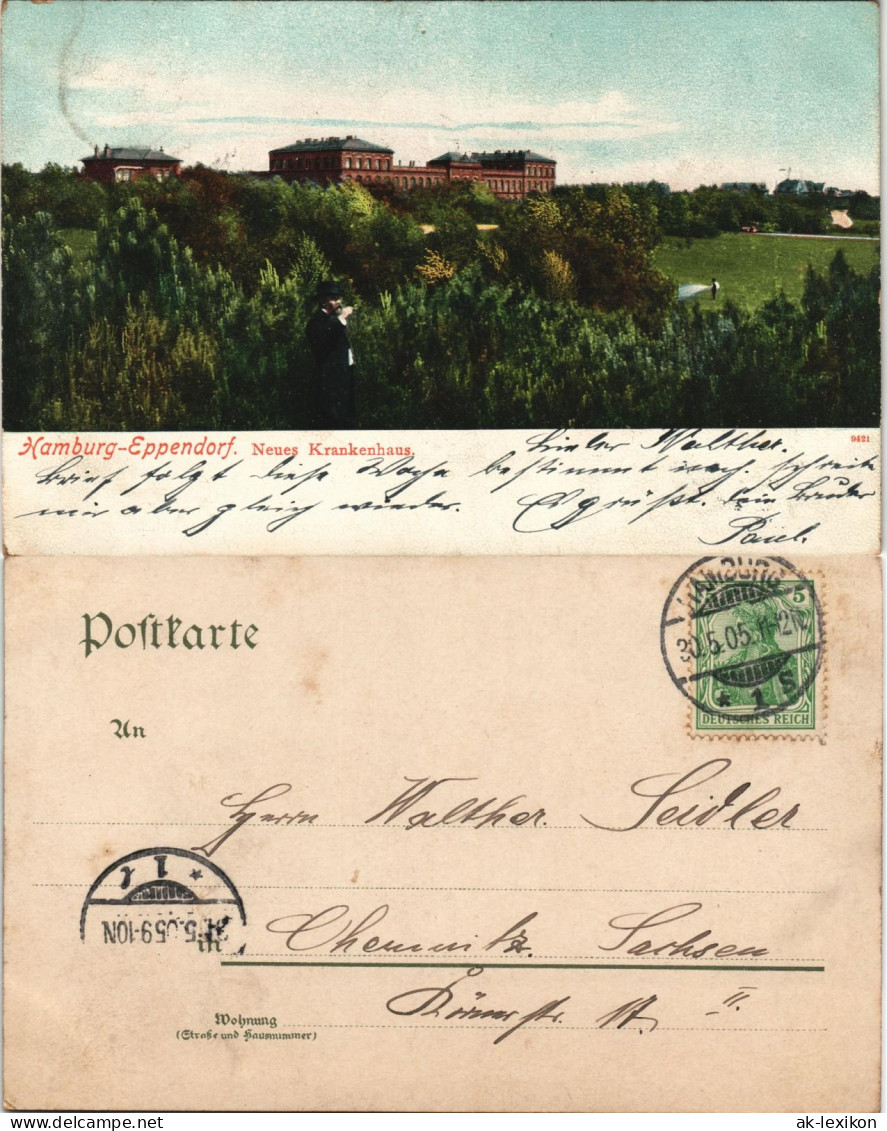 Hamburg-Eppendorf. Neues Krankenhaus.
9421
Lieber Walther.
Brief folgt diese Woche bestimmt nach. Schreibe
mir aber gleich wieder. Es grüßt. Dein Bruder
Paul.
Postkarte
HAMBURG
30.5.05.11-12N.
* 1 S
5
DEUTSCHES REICH
An
Herrn Walther Seidler
1 f *
5.05 9-10N
in Chemnitz. Sachsen
Körnerstr. 17. II.
Wohnung
(Straße und Hausnummer)
ak-lexikon